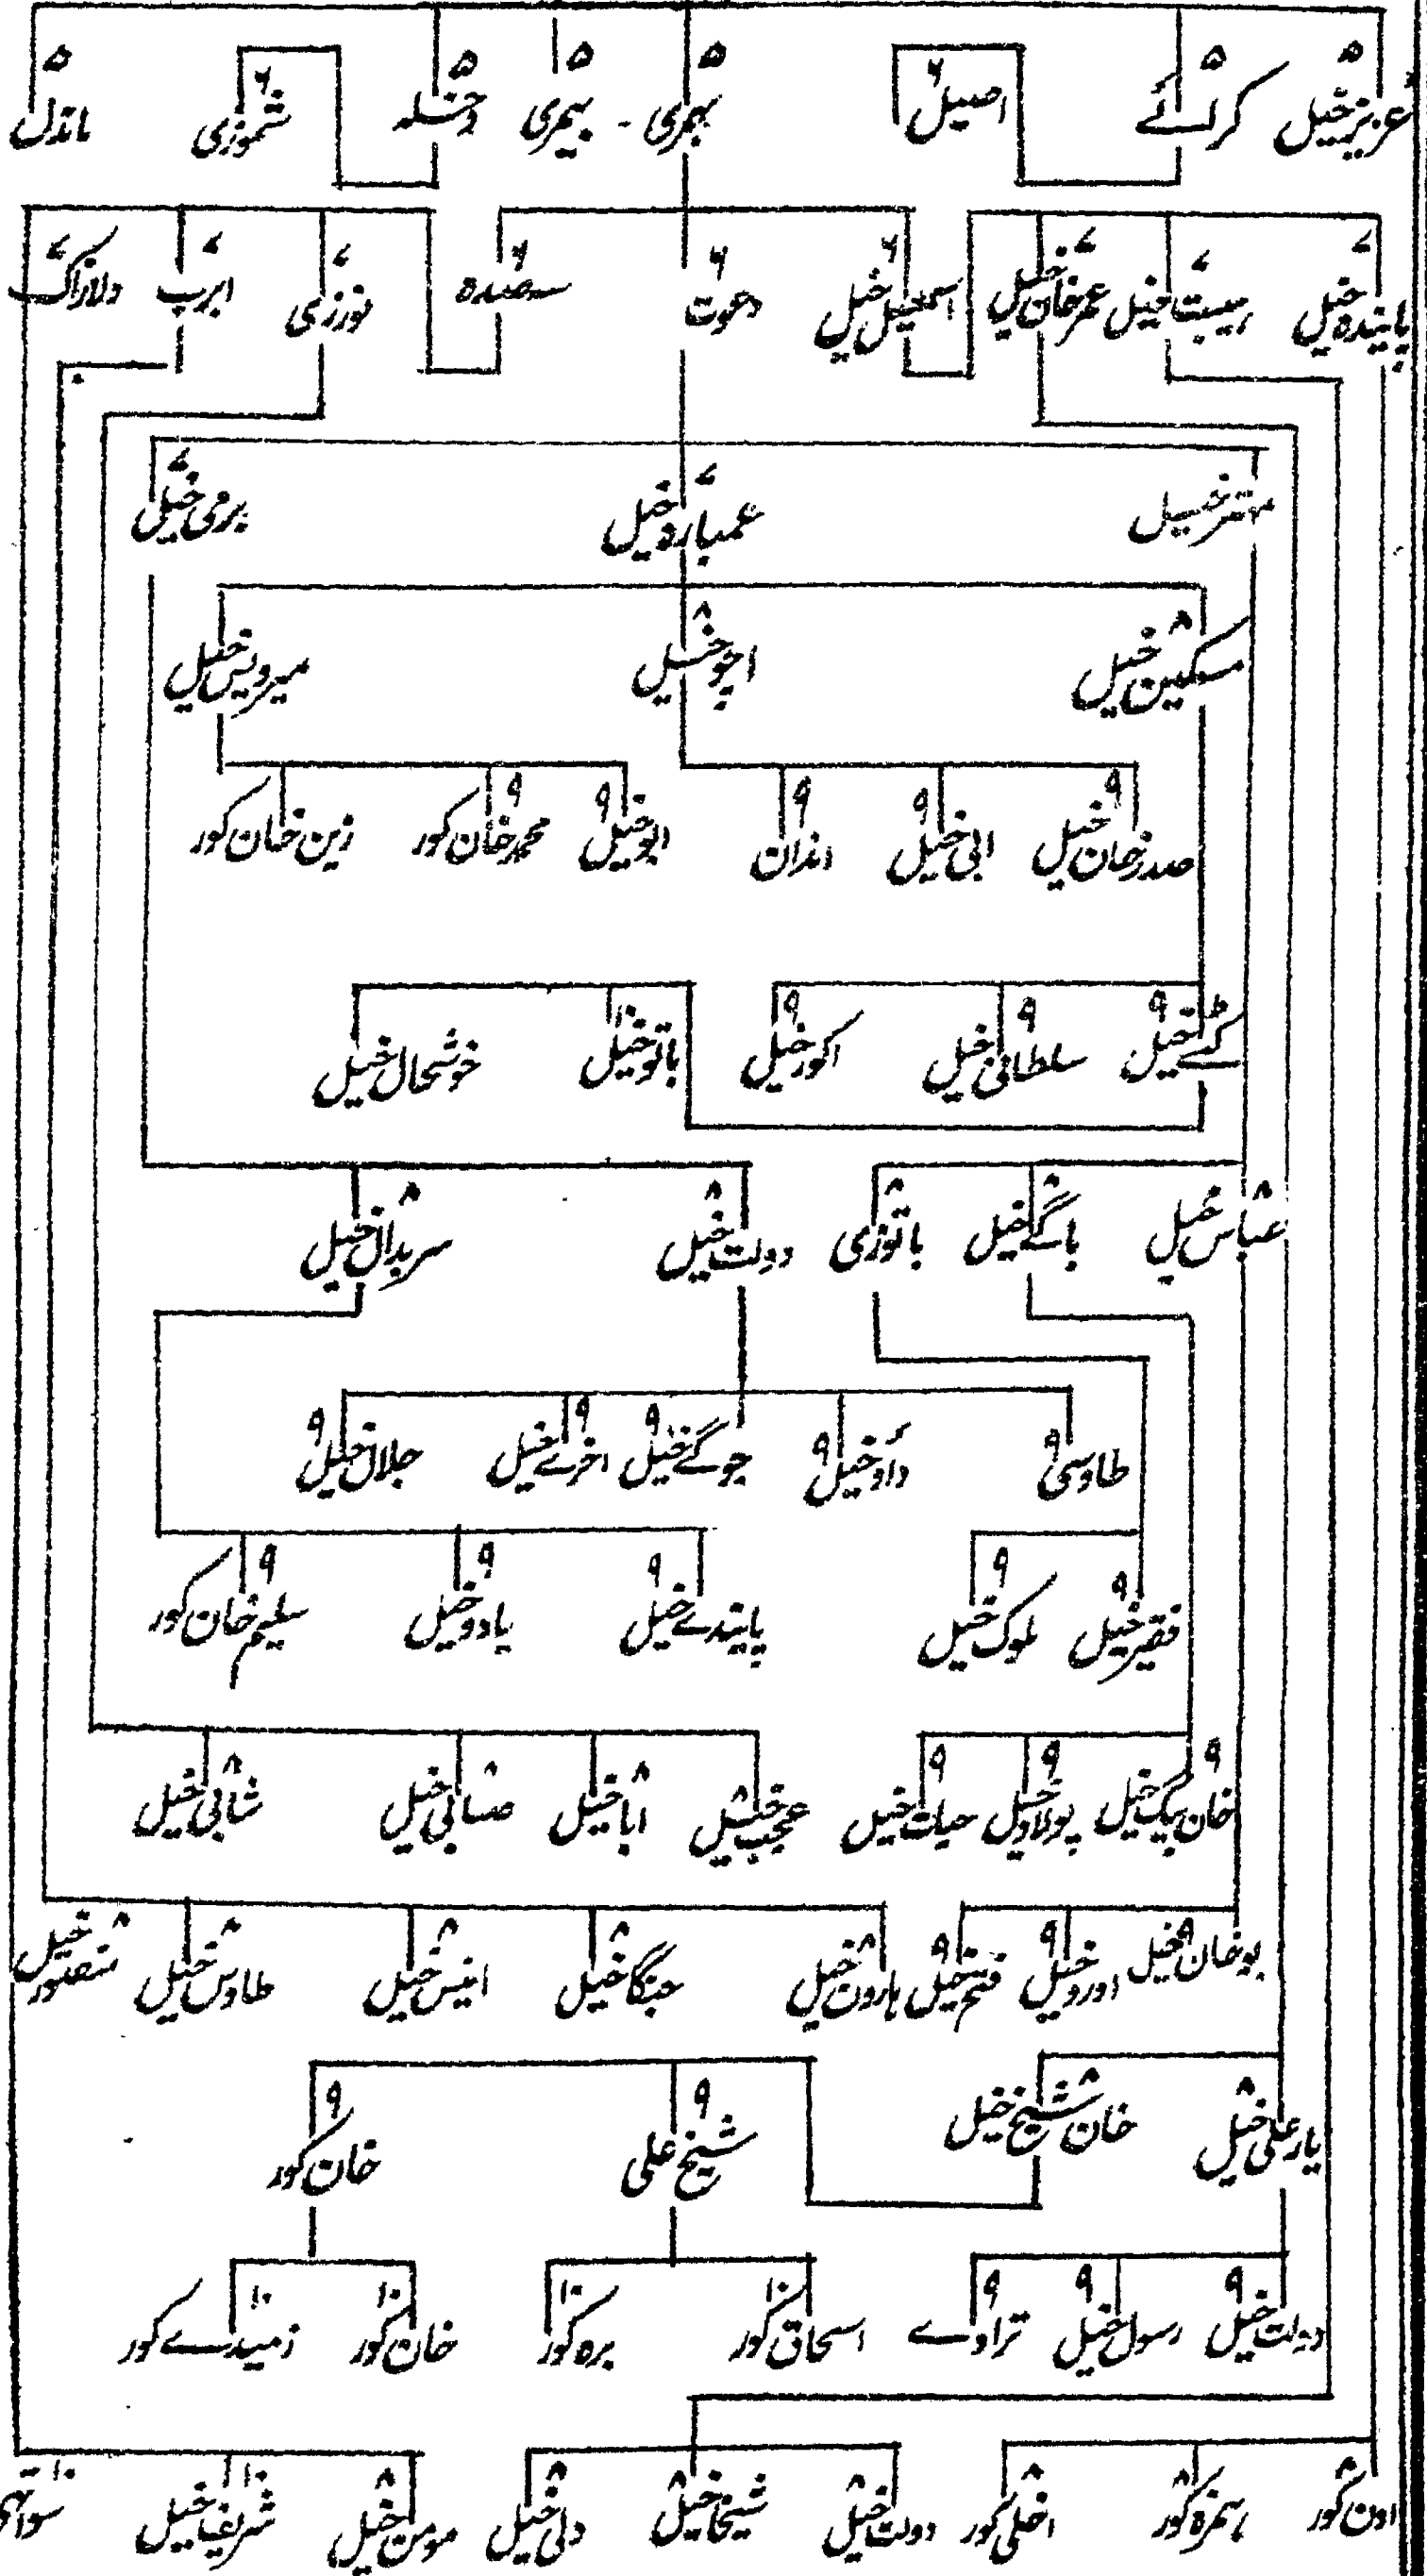 ۵ عزیز خیل ۵ کرلسئے ۶ اصیل ۵ بهمری ۵ بیمری ۵ ۶ شموزی ۵ ماندل
۷ پاینده خیل ۷ ہیبت خیل ۷ عمر خان خیل ۶ اسمٰعیل خیل ۶ دعوت ۶ سصده ۷ نورزی ۷ ایرپ ۷ دلازاک
مہتر خیل ۷ عمبارہ خیل ۷ برمی خیل
۸ مسکین خیل ۸ اچو خیل میرویس خیل
۹ صدر خان خیل ۹ ابی خیل ۹ انذان ۹ ابو خیل ۹ محمد خان کور زین خان کور
۹ خیل ۹ سلطانی خیل ۹ اکور خیل ۱۰ باتو خیل خوشحال خیل
۸ عباس خیل ۸ باگے خیل ۸ باتوزی ۸ دولت خیل ۸ سربدال خیل
۹ طاوسی ۹ داؤد خیل ۹ جوگے خیل ۹ اخرے خیل ۹ جلال خیل
۹ فقیر خیل ۹ ملوک خیل ۹ پایندے خیل ۹ یادو خیل ۹ سلیم خان کور
۹ خان بیگ خیل ۹ پولاد خیل ۹ حیات خیل عجب خیل ۸ ابا خیل ۸ صنابی خیل ۸ شابی خیل
بوخان خیل ۹ اورو خیل ۹ فتح خیل ۸ ہارون خیل ۸ جنگا خیل ۸ انیس خیل ۸ طاوس خیل ۸ منصور خیل
۸ یار علی خیل ۸ خان شیخ خیل ۹ شیخ علی ۹ خان کور
۹ دولت خیل ۹ رسول خیل ۹ تراوے ۱۰ اسحاق کور ۱۰ برہ کور ۱۰ خان کور ۱۰ زمیندے کور
۸ اودن کور ۸ ہمزہ کور ۸ اخلی کور ۸ دولت خیل ۸ شیخا خیل ۸ دلی خیل ۸ مومن خیل ۱۰ شریف خیل ۱۰